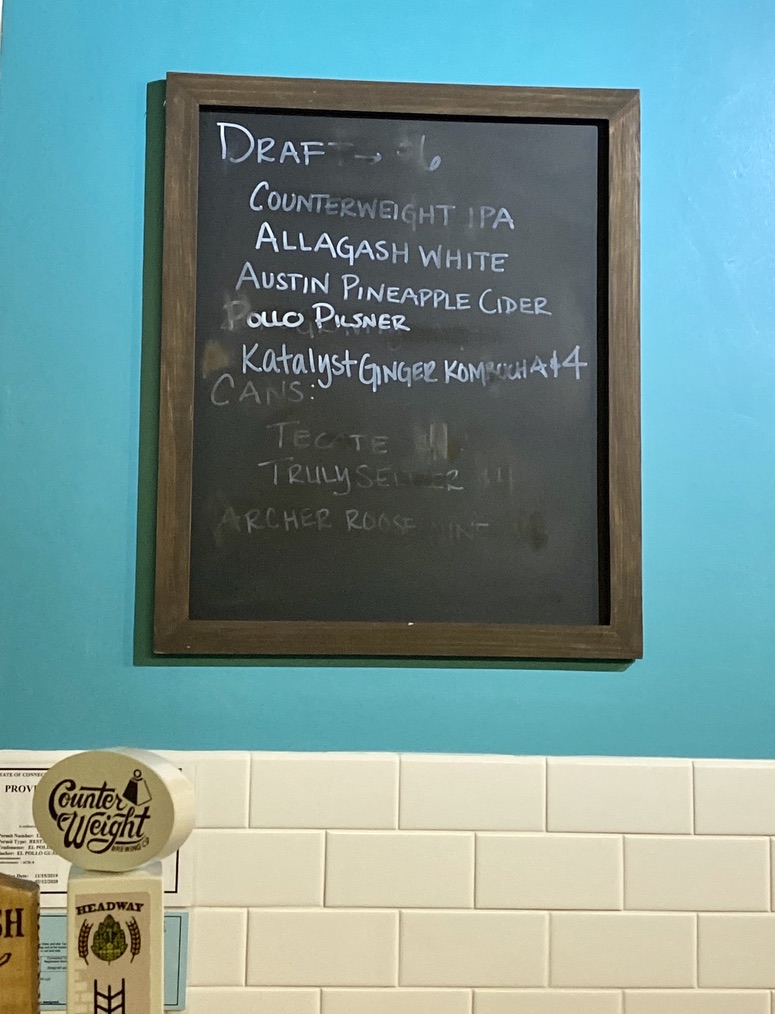 DRAFT → $6
COUNTERWEIGHT IPA
ALLAGASH WHITE
AUSTIN PINEAPPLE CIDER
POLLO PILSNER
Katalyst GINGER KOMBUCHA $4
CANS:
TECATE
TRULY SELTZER $4
ARCHER ROOSE WINE
STATE OF CONNEC
PROVI
Counter
Weight
BREWING CO
HEADWAY
SH